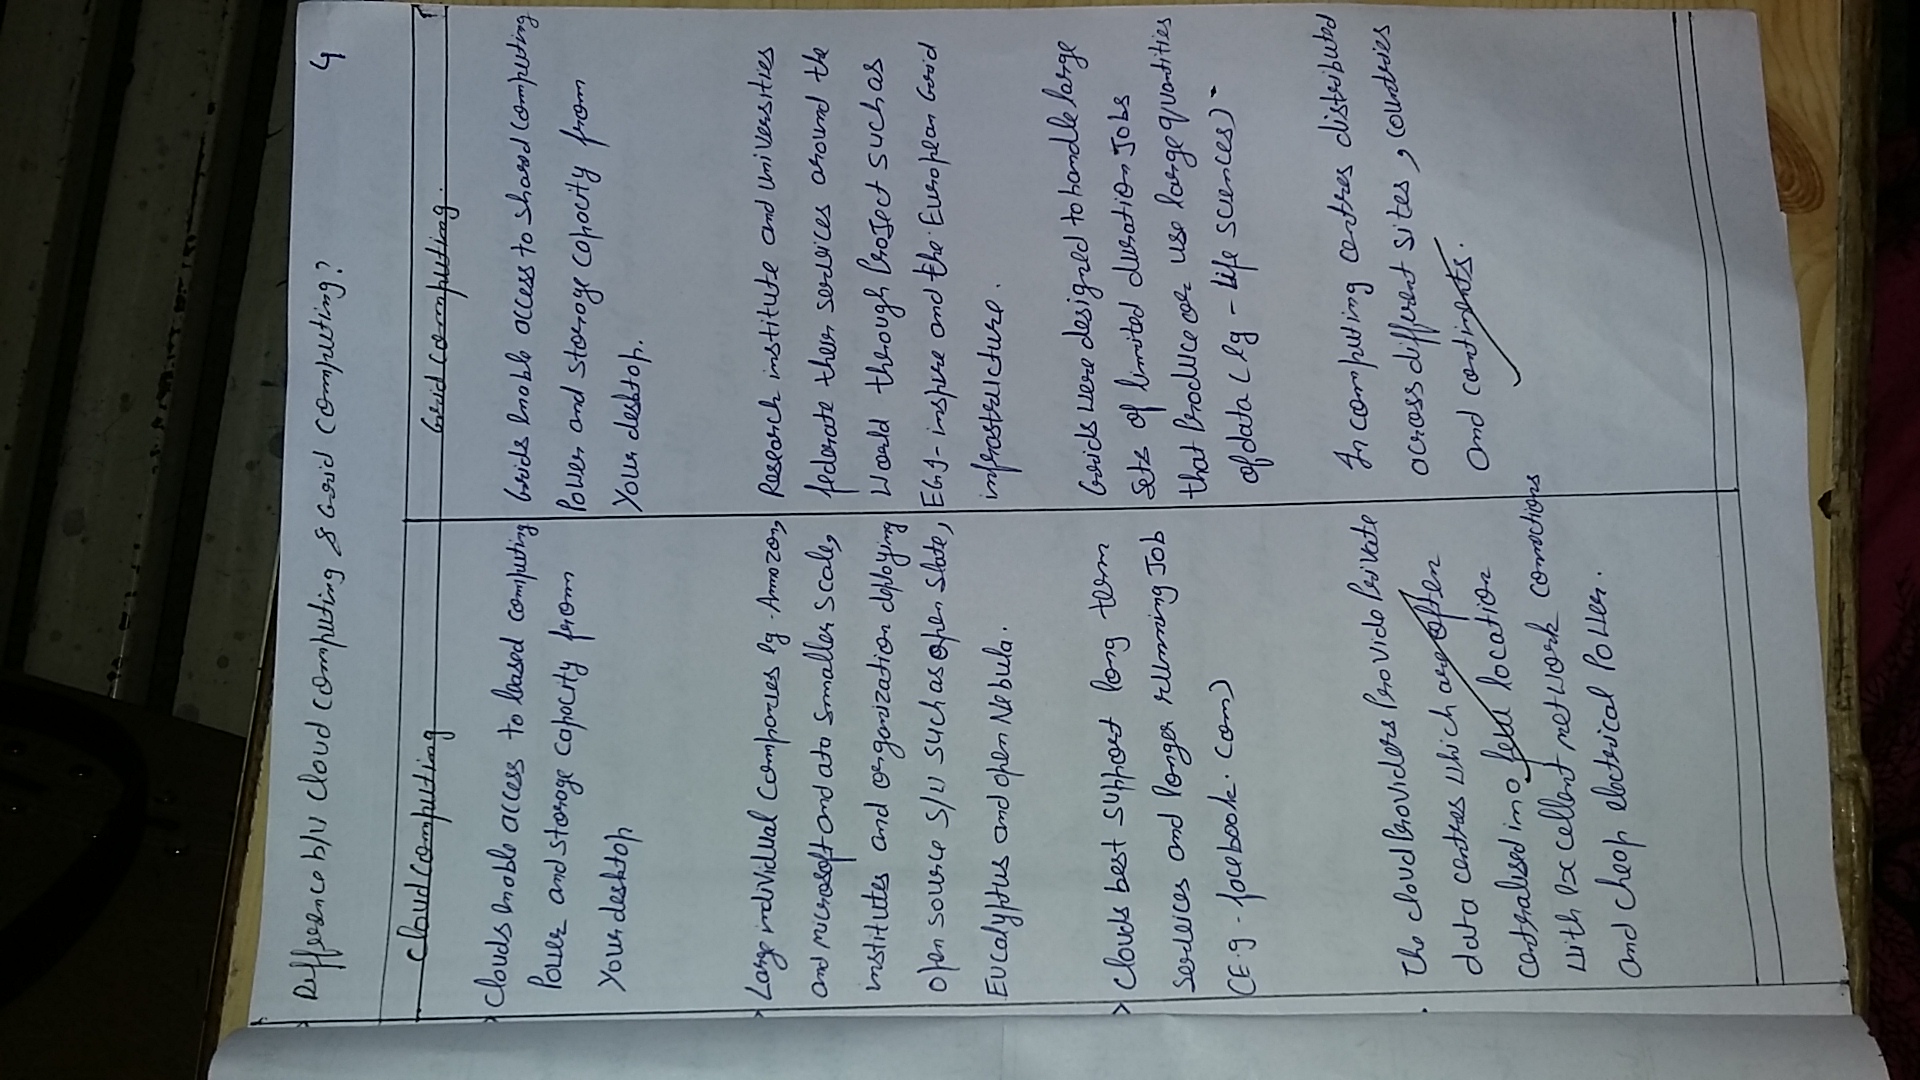 Difference b/w cloud computing & Grid computing?
4
cloud computing
Grid computing.
Clouds enable access to leased computing
Power and storage capacity from
Your desktop
Grids enable access to shared computing
Power and storage capacity from
Your desktop.
Large individual companies eg. Amazon,
and microsoft and at a smaller scale,
institutes and organization deploying
open source s/w such as open slate,
Eucalyptus and open Nebula.
Research institute and universities
federate their services around the
World through Project such as
EGI-inspire and the European Grid
infrastructure.
Clouds best support long term
services and longer running Job
(E.g - facebook.com)
Grids were designed to handle large
sets of limited duration Jobs
that Produce or use large quantities
of data (eg - Life sciences)-
The cloud Providers Provide Private
data centres which are often
centralised in a few location
with excellent network connections
and cheap electrical Power.
In computing centres distributed
across different sites, countries
and continents.